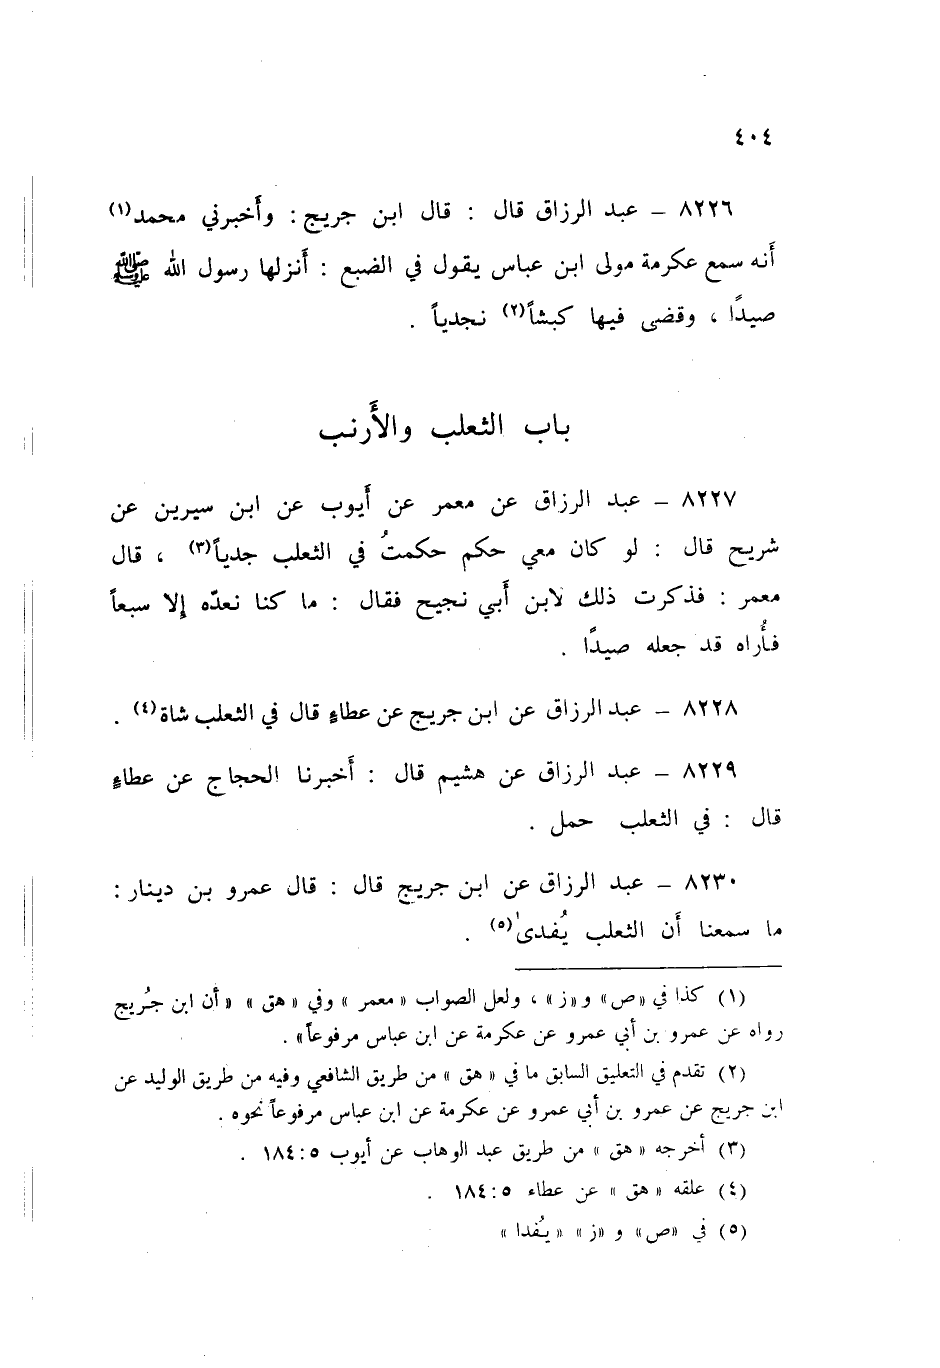 ٤٠٤
٨٢٢٦ – عبد الرزاق قال : قال ابن جريج : وأَخبرني محمد(١)
أَنه سمع عكرمة مولى ابن عباس يقول في الضبع : أَنزلها رسول الله ﷺ
صيدًا ، وقضى فيها كبشاً(٢) نجدياً .
باب الثعلب والأَرنب
٨٢٢٧ – عبد الرزاق عن معمر عن أَيوب عن ابن سيرين عن
شريح قال : لو كان معي حكم حكمتُ في الثعلب جدياً(٣) ، قال
معمر : فذكرت ذلك لابن أَبي نجيح فقال : ما كنا نعدّه إلا سبعاً
فأُراه قد جعله صيدًا .
٨٢٢٨ – عبد الرزاق عن ابن جريج عن عطاءٍ قال في الثعلب شاة(٤) .
٨٢٢٩ – عبد الرزاق عن هشيم قال : أَخبرنا الحجاج عن عطاءٍ
قال : في الثعلب حمل .
٨٢٣٠ – عبد الرزاق عن ابن جريج قال : قال عمرو بن دينار :
ما سمعنا أَن الثعلب يُفدىٰ(٥) .
(١) كذا في «ص» و«ز» ، ولعل الصواب «معمر» وفي «هق» «أن ابن جُريج
رواه عن عمرو بن أبي عمرو عن عكرمة عن ابن عباس مرفوعاً» .
(٢) تقدم في التعليق السابق ما في «هق» من طريق الشافعي وفيه من طريق الوليد عن
ابن جريج عن عمرو بن أبي عمرو عن عكرمة عن ابن عباس مرفوعاً نحوه .
(٣) أخرجه «هق» من طريق عبد الوهاب عن أيوب ٥ : ١٨٤ .
(٤) علقه «هق» عن عطاء ٥ : ١٨٤ .
(٥) في «ص» و «ز» «يُفدا»